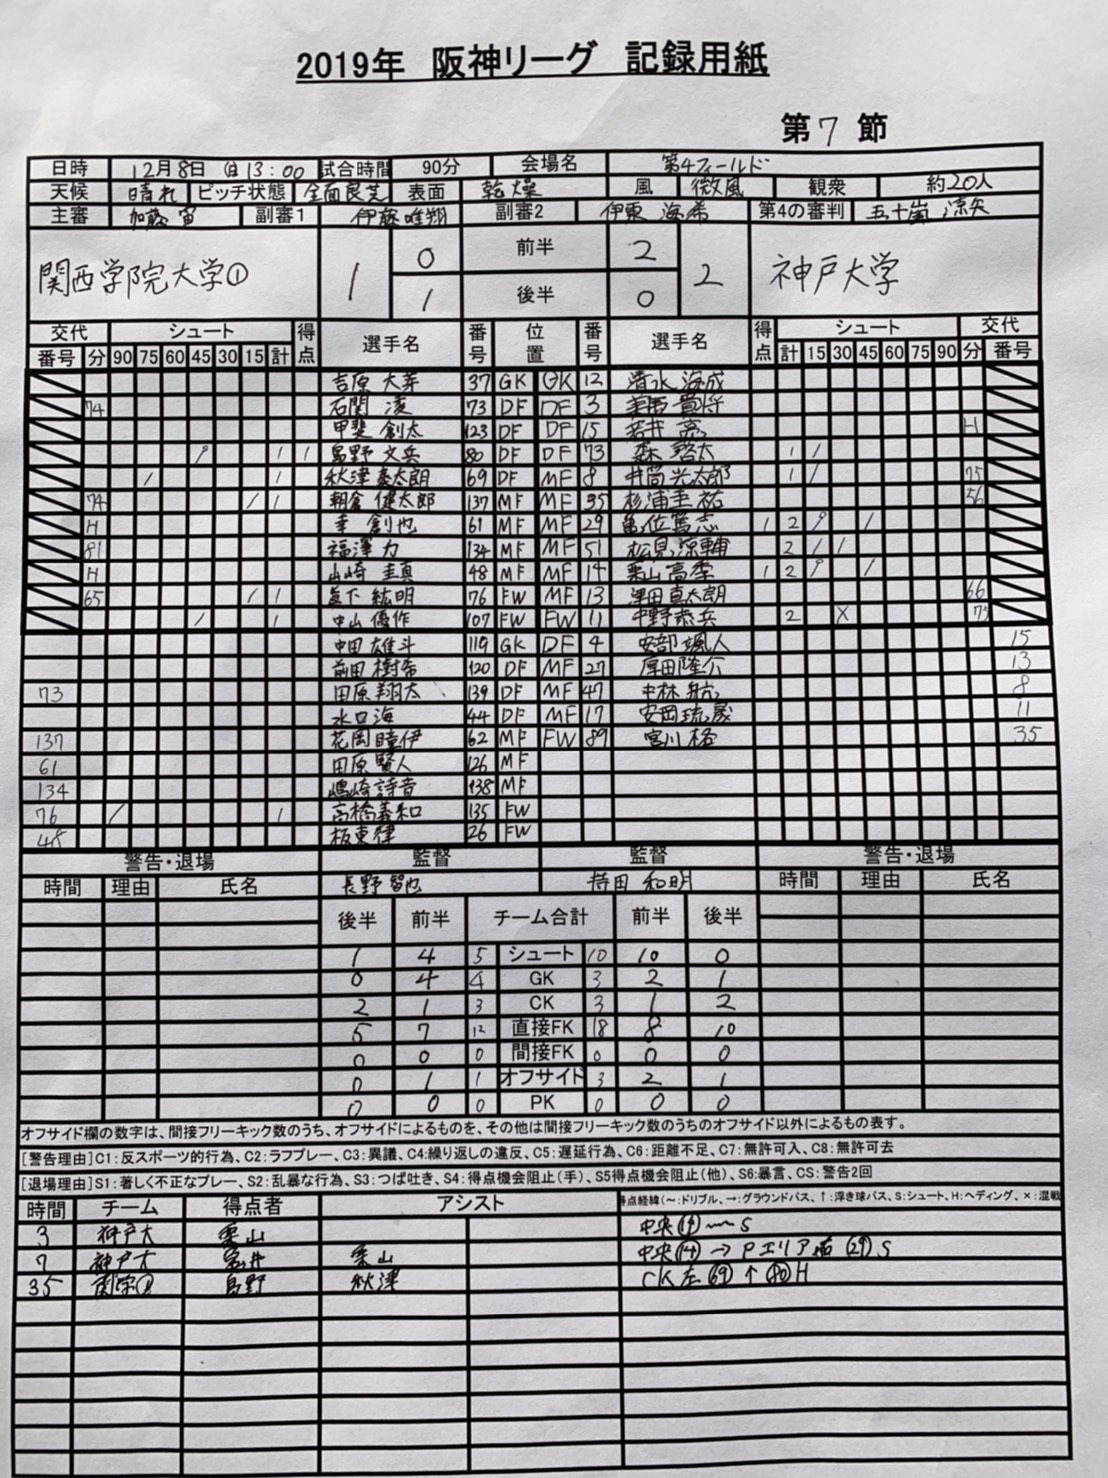 2019年 阪神リーグ 記録用紙
第7節
日時 12月8日(日)13:00 試合時間 90分 会場名 第4フィールド
天候 晴れ ピッチ状態 全面良芝 表面 乾燥 風 微風 観衆 約20人
主審 加藤 宙 副審1 伊藤唯翔 副審2 伊東 海希 第4の審判 五十嵐 涼矢
関西学院大学① 1 0 前半 2 2 神戸大学
1 後半 0
交代 シュート 得点 選手名 番号 位置 番号 選手名 得点 シュート 交代
番号 分 90 75 60 45 30 15 計 計 15 30 45 60 75 90 分 番号
吉原 大芽 37 GK GK 12 清水 海成
74 石関 凌 73 DF DF 3 貴将
甲斐 創太 123 DF DF 15 若井 亮 H
1 1 島野 文兵 80 DF DF 73 森 啓太 1 /
/ 1 秋津 泰太朗 69 DF MF 8 井筒 光太郎 1 / 75
74 / 1 朝倉 健太郎 137 MF MF 35 杉浦 圭祐 56
H 幸 創也 61 MF MF 29 亀位 篤志 1 2 /
81 福澤 力 134 MF MF 51 松見 涼輔 2 / /
H 山崎 圭真 48 MF MF 14 栗山 高季 1 2 /
65 / 1 宮下 紘明 76 FW MF 13 津田 直太朗 66
/ 1 中山 優作 107 FW FW 11 中野 恭兵 2 × 75
中田 雄斗 119 GK DF 4 安部 颯人 15
前田 樹希 120 DF MF 27 厚田 隆介 13
73 田原 翔太 139 DF MF 47 中林 航 8
水口 海 44 DF MF 17 安岡 琉晟 11
137 花岡 瞳伊 62 MF FW 89 宮川 格 35
61 田原 賢人 126 MF
134 嶋崎 詩音 138 MF
76 / 1 高橋 義和 135 FW
48 板東 律 26 FW
警告・退場 監督 監督 警告・退場
時間 理由 氏名 長野 智也 持田 和明 時間 理由 氏名
後半 前半 チーム合計 前半 後半
1 4 5 シュート 10 10 0
0 4 4 GK 3 2 1
2 1 3 CK 3 1 2
5 7 12 直接FK 18 8 10
0 0 0 間接FK 0 0 0
0 1 1 オフサイド 3 2 1
0 0 0 PK 0 0 0
オフサイド欄の数字は、間接フリーキック数のうち、オフサイドによるものを、その他は間接フリーキック数のうちのオフサイド以外によるもの表す。
[警告理由]C1:反スポーツ的行為、C2:ラフプレー、C3:異議、C4:繰り返しの違反、C5:遅延行為、C6:距離不足、C7:無許可入、C8:無許可去
[退場理由]S1:著しく不正なプレー、S2:乱暴な行為、S3:つば吐き、S4:得点機会阻止(手)、S5得点機会阻止(他)、S6:暴言、CS:警告2回
時間 チーム 得点者 アシスト 得点経緯(~:ドリブル、→:グラウンドパス、↑:浮き球パス、S:シュート、H:ヘディング、×:混戦
3 神戸大 栗山 中央⑭~S
7 神戸大 栗山 中央⑭→Pエリア右㉙S
35 関学① 島野 秋津 CK左(69)↑(80)H